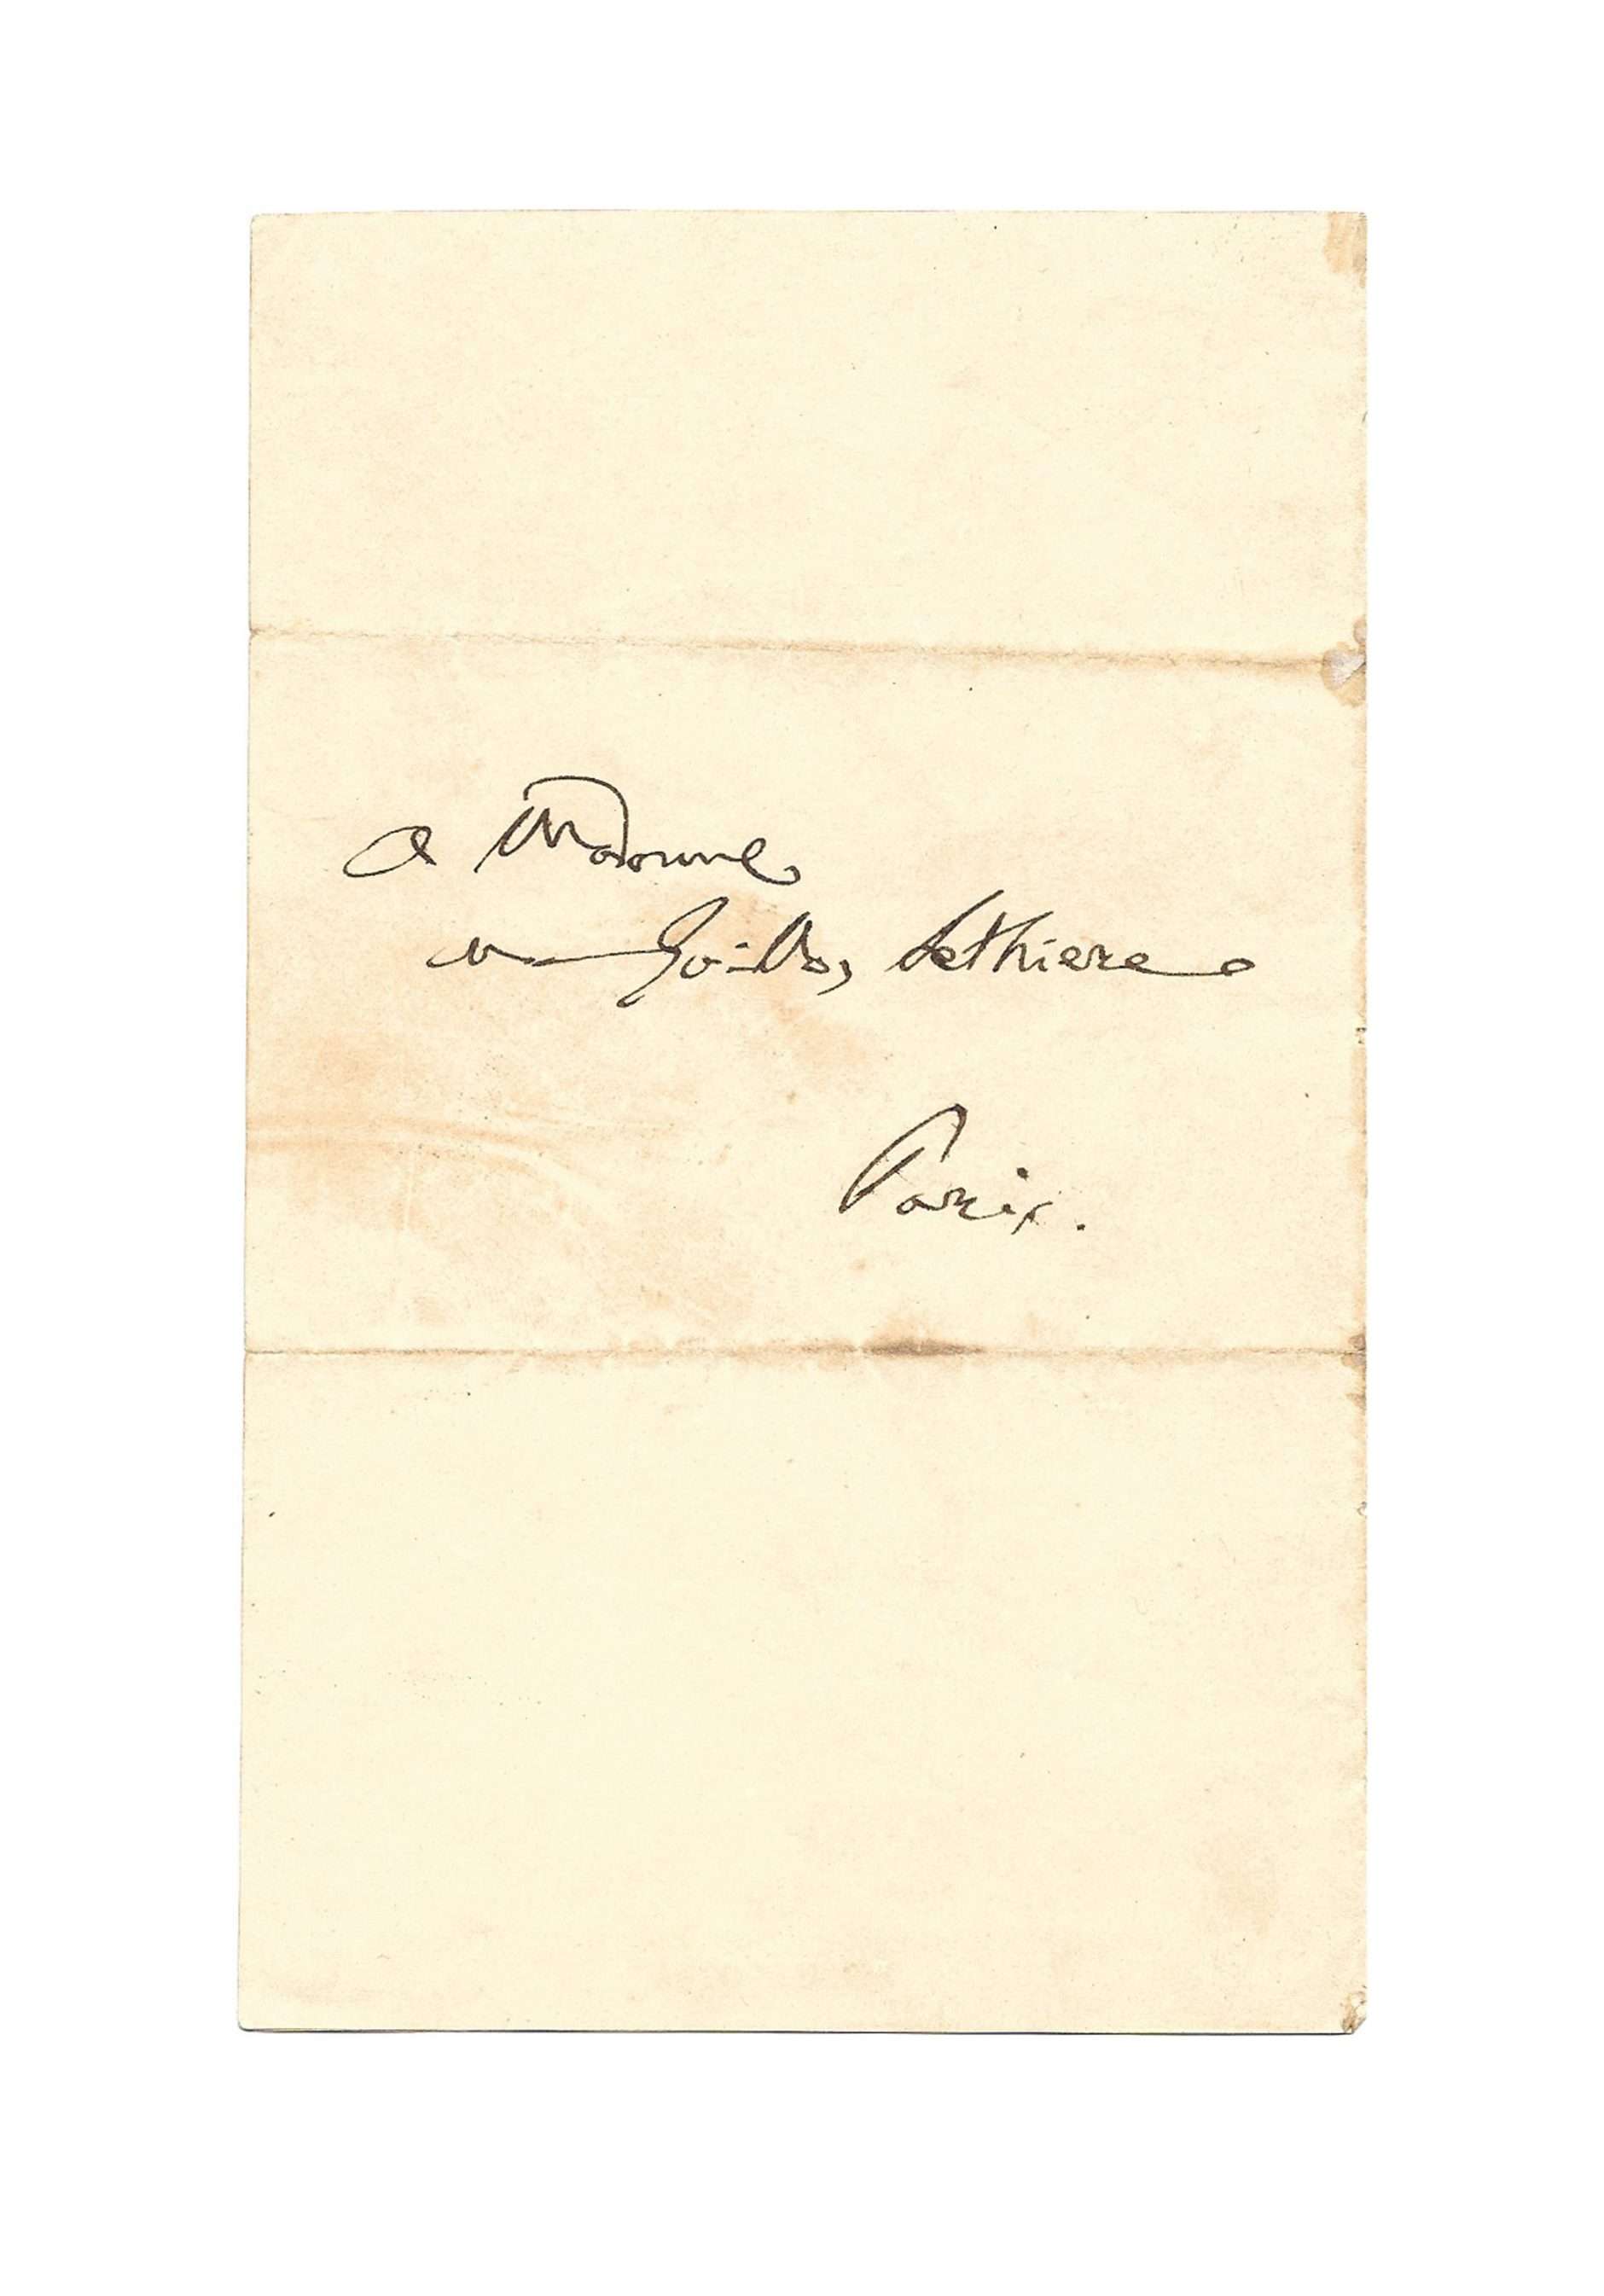 a Madame
Guillon Lethiere
Paris.